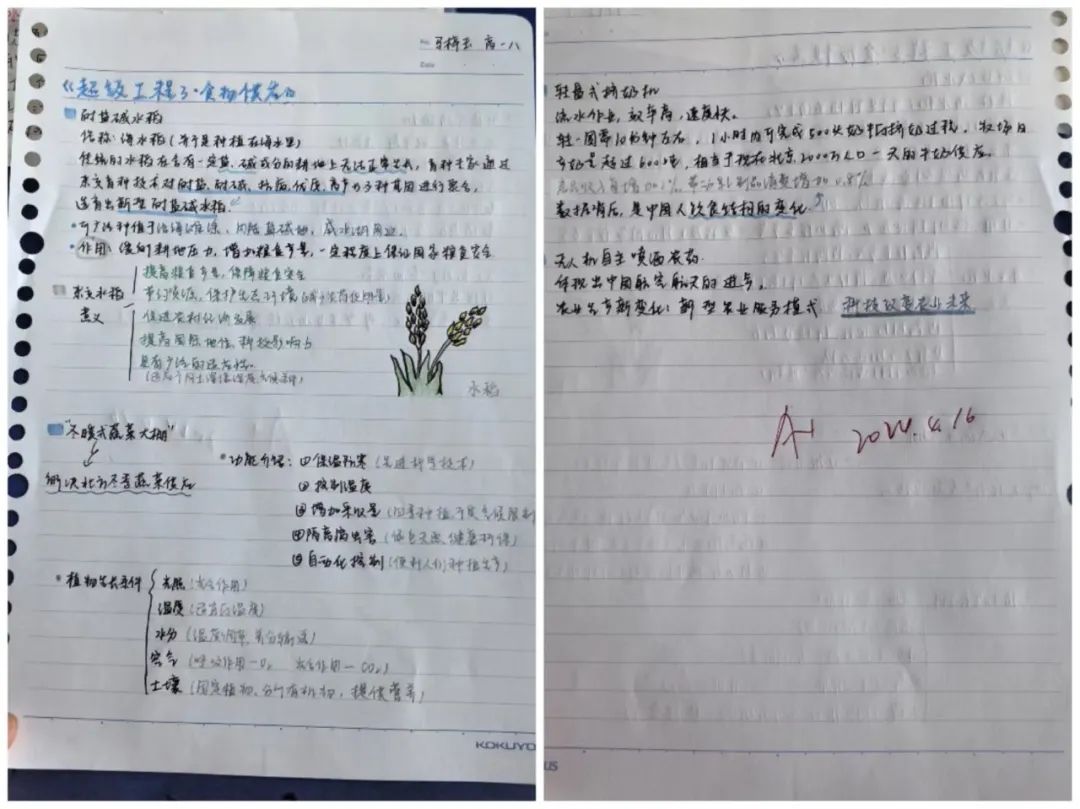 高一八
Date
《超级工程3·食物供给》
耐盐碱水稻
俗称:海水稻(等于是种植在海水里)
传统的水稻在含有一定盐、碱成分的耕地上无法正常生长,育种专家通过
杂交育种技术对耐盐、耐碱、抗病、优质、高产的多种基因进行聚合,
选育出新型耐盐碱水稻.
可广泛种植于沿海滩涂、内陆盐碱地、咸水湖周边.
作用:缓解耕地压力,增加粮食产量,一定程度上保证国家粮食安全
提高粮食产量,保障粮食安全
杂交水稻
节约资源,保护生态环境(减少农药使用量)
意义
促进农村经济发展
提高国际地位、科技影响力
具有广泛的适应性.
(适应不同土壤
水稻
"冬暖式蔬菜大棚"
解决北方冬季蔬菜供应
功能介绍:①保温防寒(先进科学技术)
②控制温度
③增加采收量(四季种植,不受气候限制)
④隔离病虫害(绿色天然、健康环保)
⑤自动化控制(便利人们种植生产)
植物生长条件
光照(光合作用)
温度(适宜的温度)
水分(温度调节,养分输送)
空气(呼吸作用—O₂ 光合作用—CO₂)
土壤(固定植物、分解有机物,提供营养)
KOKUYO
转盘式挤奶机
流水作业,效率高,速度快。
转一圈需10分钟左右,1小时内可完成500头奶牛的挤奶过程.牧场日
产奶量超过600吨,相当于现在北京2000万人口一天的牛奶供应.
数据背后,是中国人饮食结构的变化.
无人机自主喷洒农药.
体现出中国航空航天的进步.
农业生产新变化:新型农业服务模式 科技改变农业未来
A+ 2024.4.16